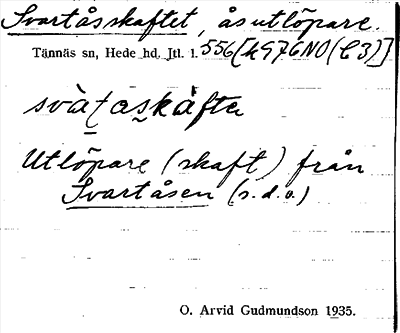 Svartåsskaftet, åsutlöpare.
Tännäs sn, Hede hd. Jtl. l. 556[4976NO(C3)]
svàṯas̱kàfta
Utlöpare (skaft) från
Svartåsen (s.d.o.)
O. Arvid Gudmundson 1935.